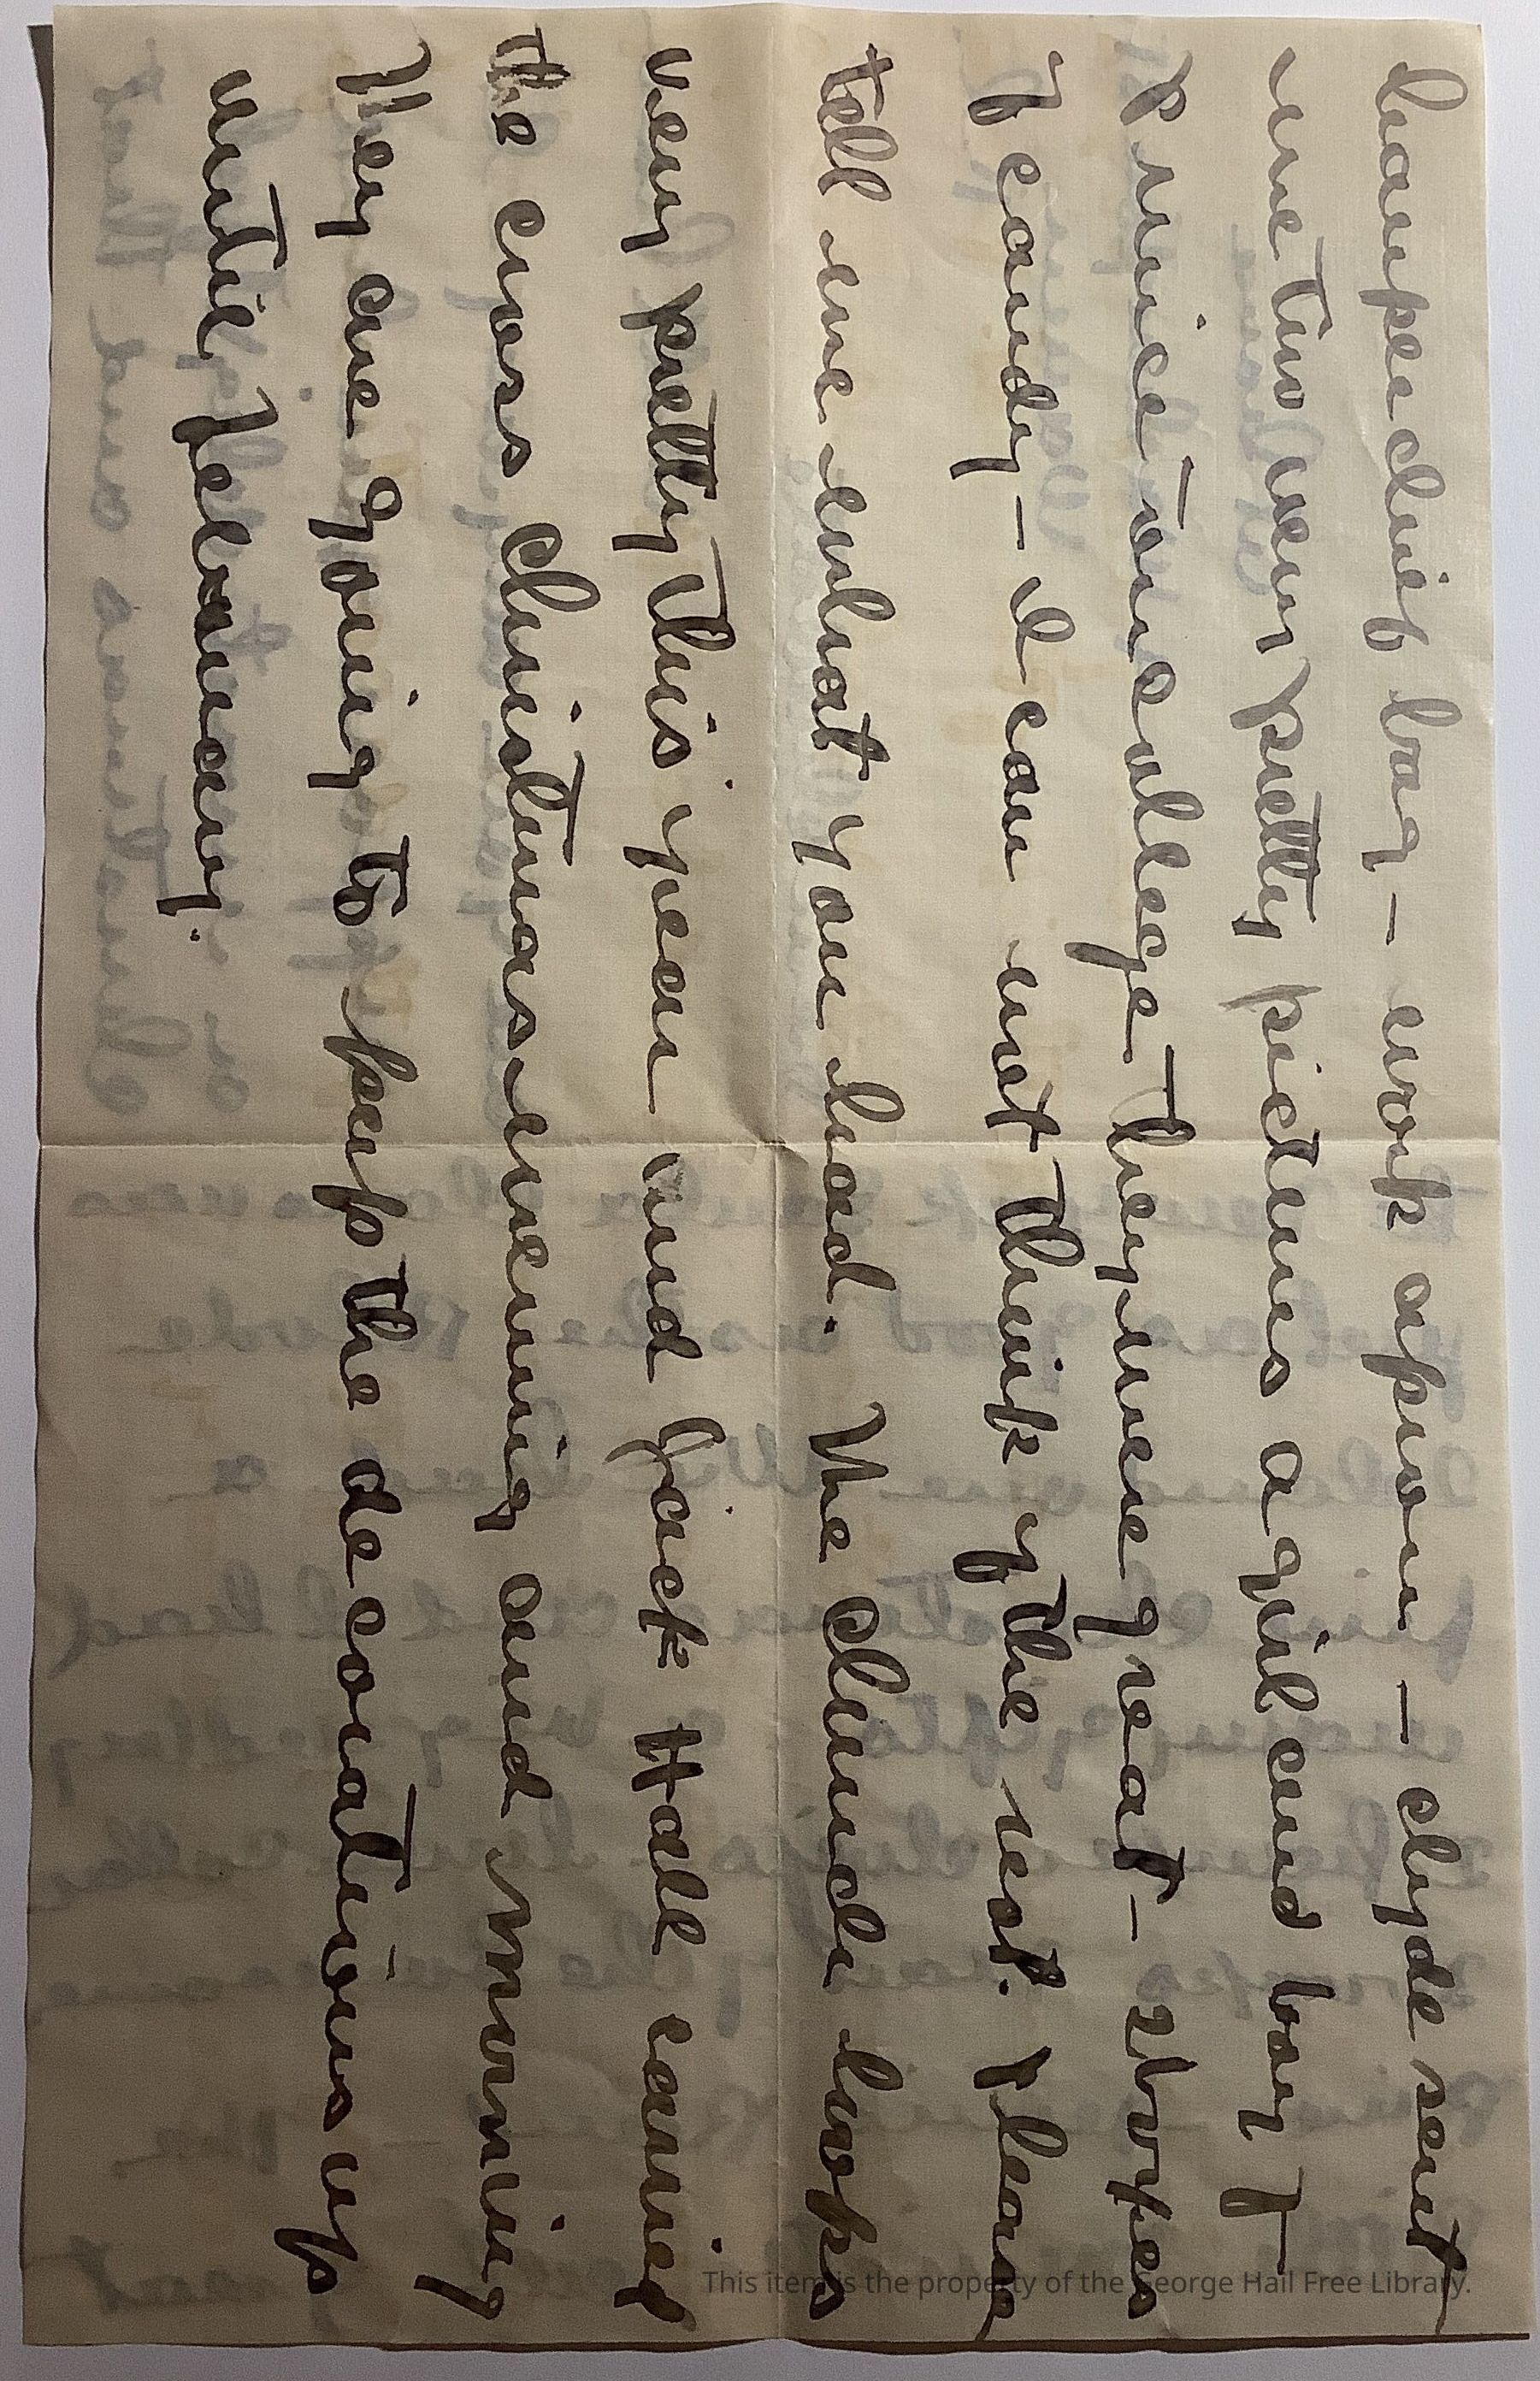 hanpechief bag - work apron - clyde sent
me two very pretty pictures a girl and boy f -
P nice tonsollege hey were great - 2 boxes
of candy - I can not think of the rest. Please
tell me what you had. The church looks
very pretty this year and Jack Hall carried
the cross christmas evening and morning
They are going to keep the decorations up
until February.
This item is the property of the George Hail Free Library.